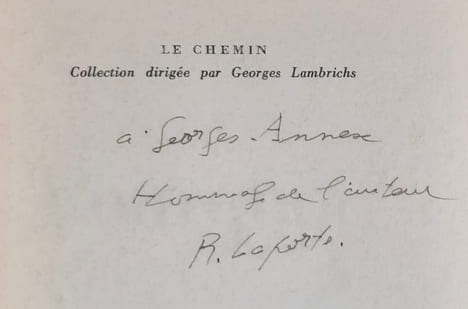 LE CHEMIN
Collection dirigée par Georges Lambrichs
a Georges Annex
Hommage de l'auteur
R. Laporte.